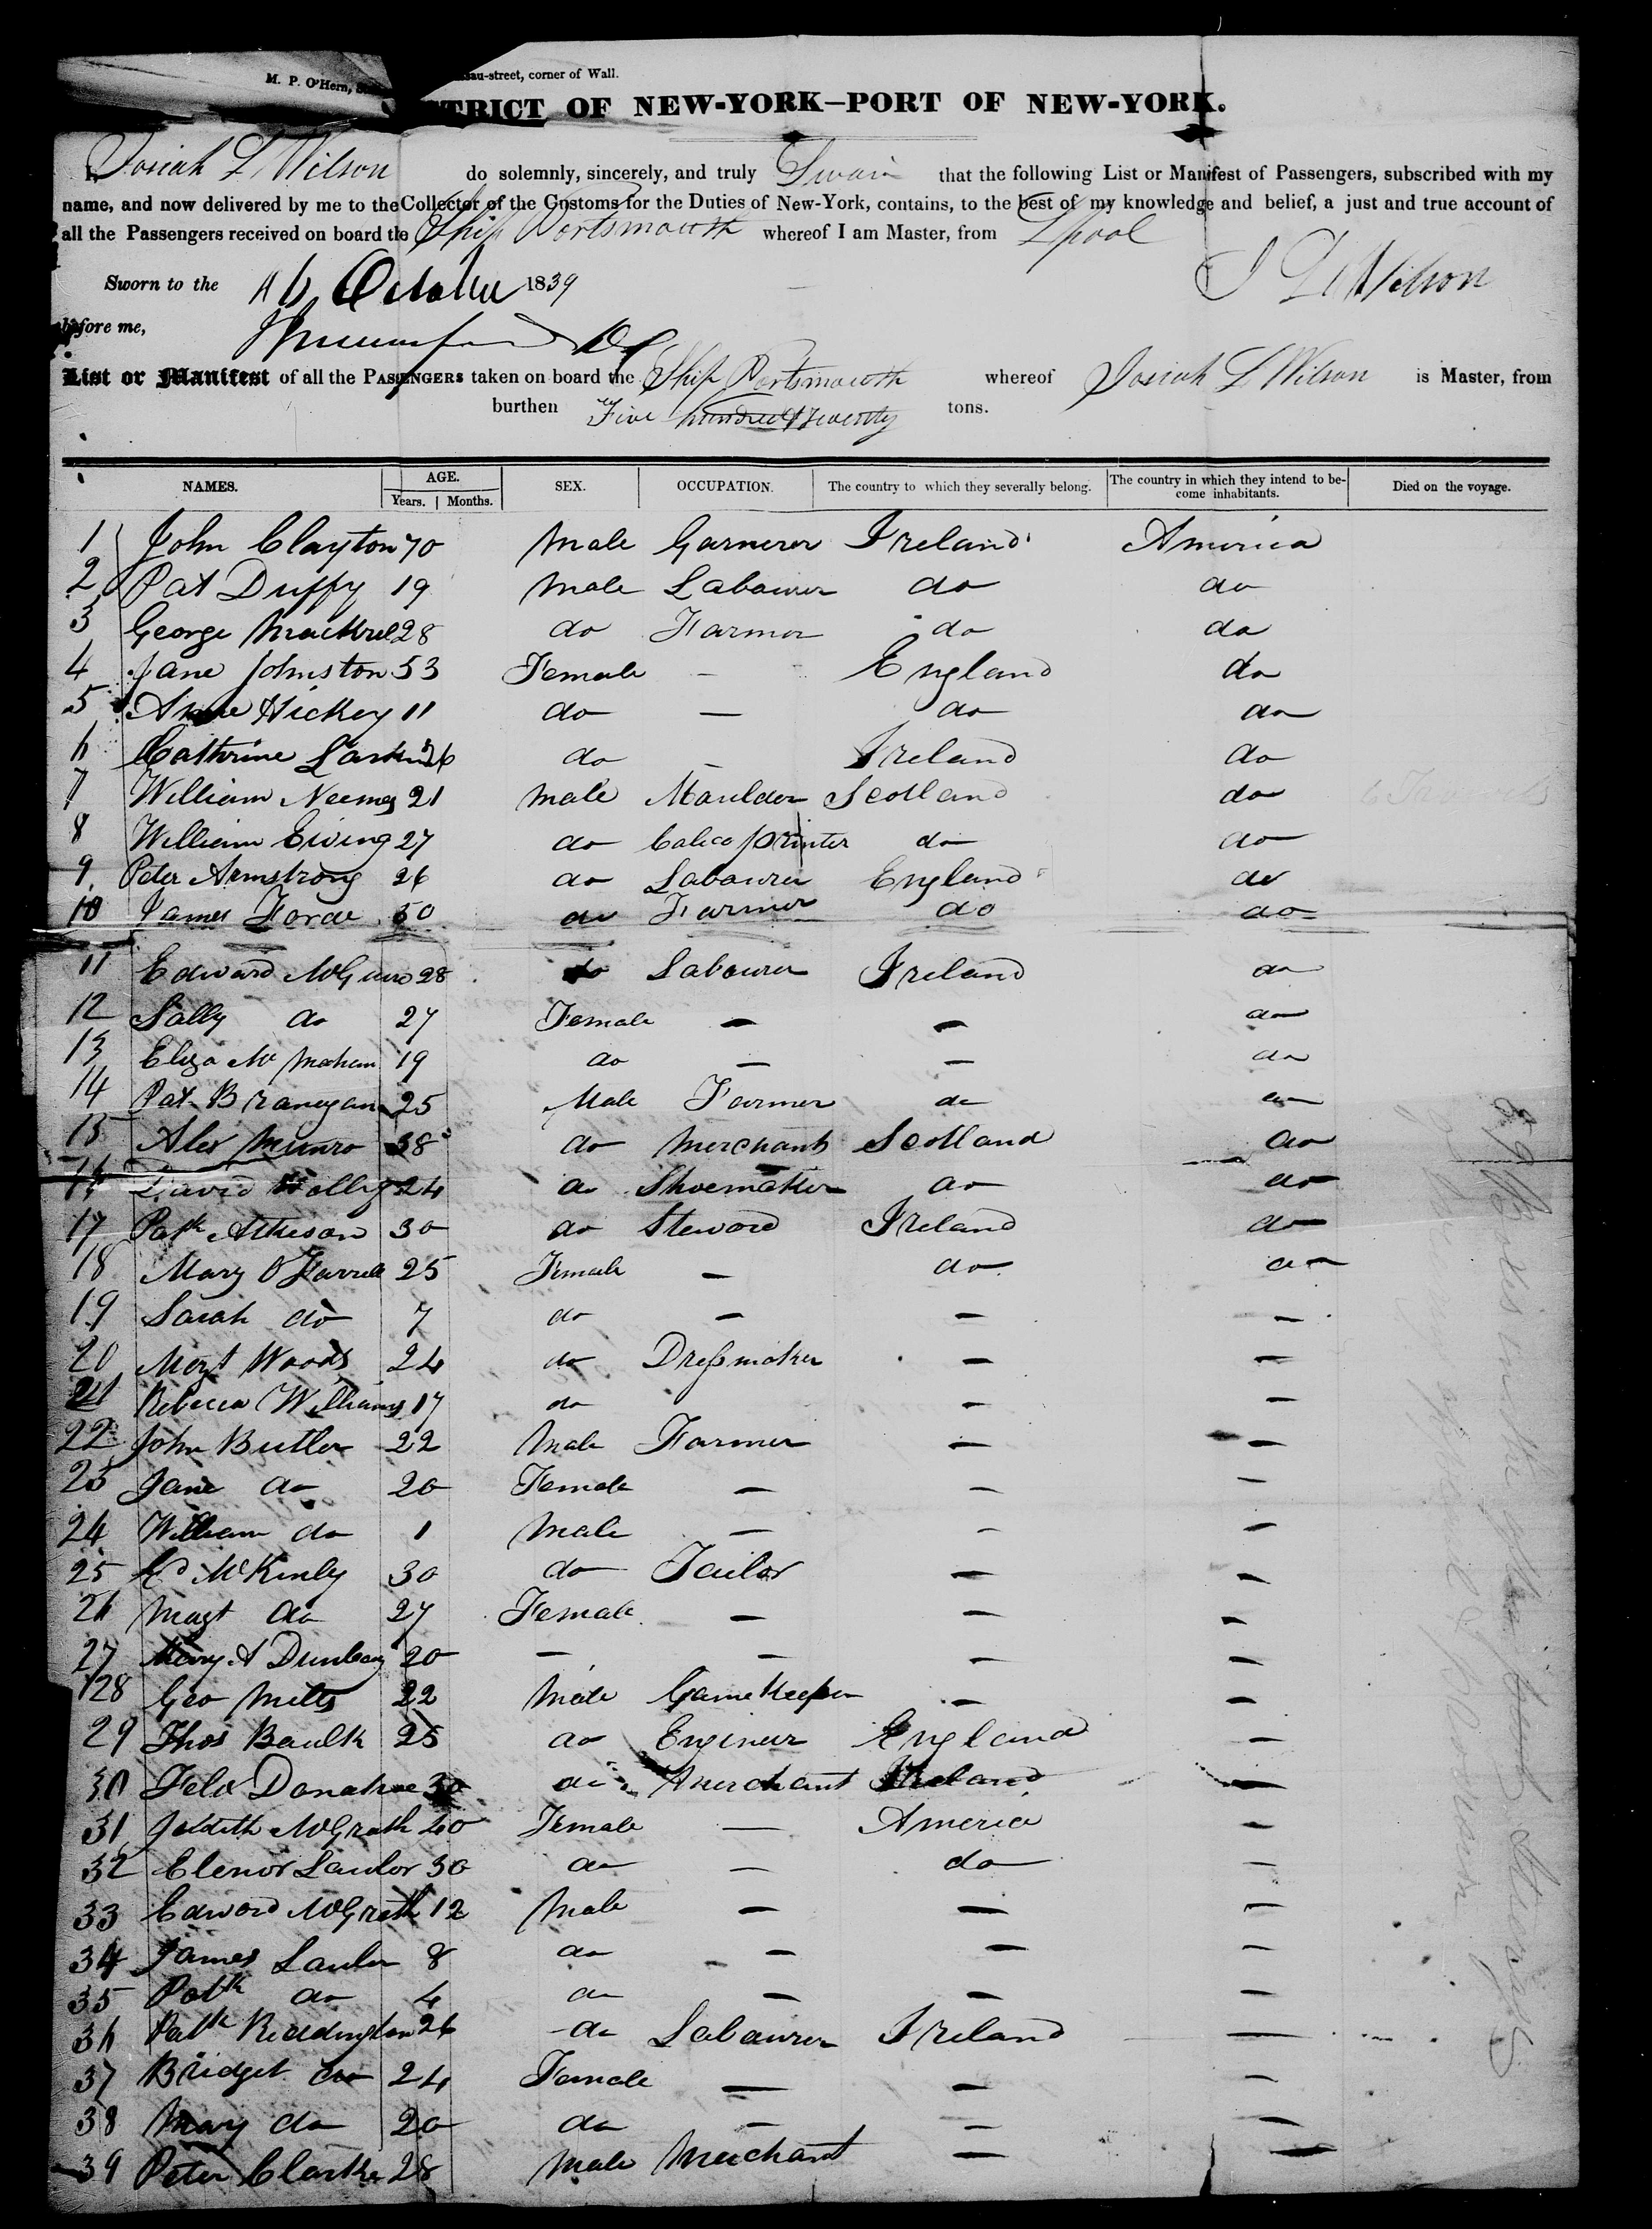 M. P. O'Hern,
sau-street, corner of Wall.
TRICT OF NEW-YORK—PORT OF NEW-YORK.
I, Josiah L Wilson do solemnly, sincerely, and truly Swair that the following List or Manifest of Passengers, subscribed with my
name, and now delivered by me to the Collector of the Customs for the Duties of New-York, contains, to the best of my knowledge and belief, a just and true account of
all the Passengers received on board the Ship Portsmouth whereof I am Master, from Lpool
Sworn to the 16 October 1839 J L Wilson
before me,
List or Manifest of all the PASSENGERS taken on board the Ship Portsmouth whereof Josiah L Wilson is Master, from
burthen Five hundred & seventy tons.
NAMES. AGE. Years. Months. SEX. OCCUPATION. The country to which they severally belong. The country in which they intend to become inhabitants. Died on the voyage.
1 John Clayton 70 Male Garnerer Ireland America
2 Pat Duffy 19 Male Labourer do do
3 George Mackrel 28 do Farmer do do
4 Jane Johnston 53 Female — England do
5 Anne Hickey 11 do — do do
6 Cathrine Larkin 26 do — Ireland do
7 William Neemes 21 Male Moulder Scotland do
8 William Ewing 27 do Calico printer do do
9 Peter Armstrong 26 do Labourer England do
10 James Forde 50 do Farmer do do
11 Edward McGuire 28 do Labourer Ireland do
12 Sally do 27 Female — — do
13 Eliza Mc Mahan 19 do — — do
14 Pat Branegan 25 Male Farmer do do
15 Alex Munro 38 do Merchant Scotland do
16 David 24 do Shoemaker do do
17 Patk Atkeson 30 do Steward Ireland do
18 Mary O Farrell 25 Female — do do
19 Sarah do 7 do — — —
20 Mogt Woods 24 do Dressmaker — —
21 Rebecca Williams 17 do — —
22 John Butler 22 Male Farmer — —
23 Jane do 20 Female — — —
24 William do 1 Male — — —
25 McKinly 30 do Tailor — —
26 Magt do 27 Female — — —
27 Mary A Dunbary 20 — — — —
28 Geo Mills 22 Male Game Keeper — —
29 Thos Baulk 25 do Engineer England —
30 Felx Donahoe 30 do Merchant Ireland —
31 Judith McGrath 40 Female — America —
32 Elenor Lawlor 30 do — do —
33 Edward McGrath 12 Male — — —
34 James Lawlor 8 do — — —
35 Patk do 4 do — — —
36 Patk Reddington 26 do Labourer Ireland —
37 Bridget do 24 Female — — —
38 Mary do 20 do — — —
39 Peter Clarke 28 Male Merchant — —